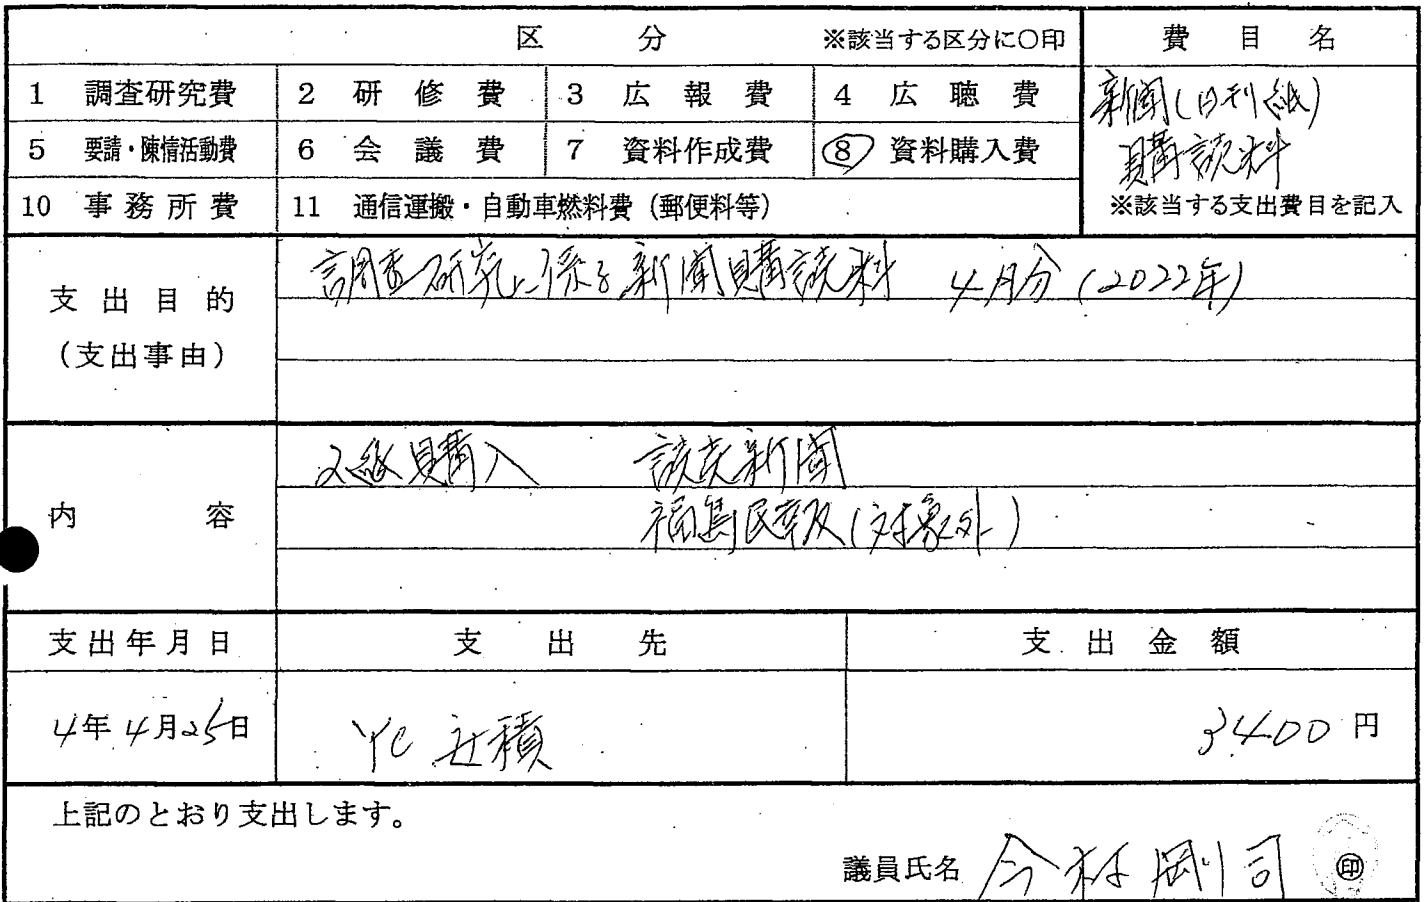 区 分 ※該当する区分に○印 費 目 名
1 調査研究費 2 研 修 費 3 広 報 費 4 広 聴 費
新聞(日刊紙)
5 要請・陳情活動費 6 会 議 費 7 資料作成費 ⑧ 資料購入費
購読料
10 事務所費 11 通信運搬・自動車燃料費(郵便料等)
※該当する支出費目を記入
支出目的
(支出事由)
調査研究に係る新聞購読料 4月分(2022年)
内 容
2紙購入 読売新聞
福島民報(対象外)
支出年月日 支 出 先 支 出 金 額
4年4月25日 YC 3400円
上記のとおり支出します。
議員氏名 今村剛司 ㊞